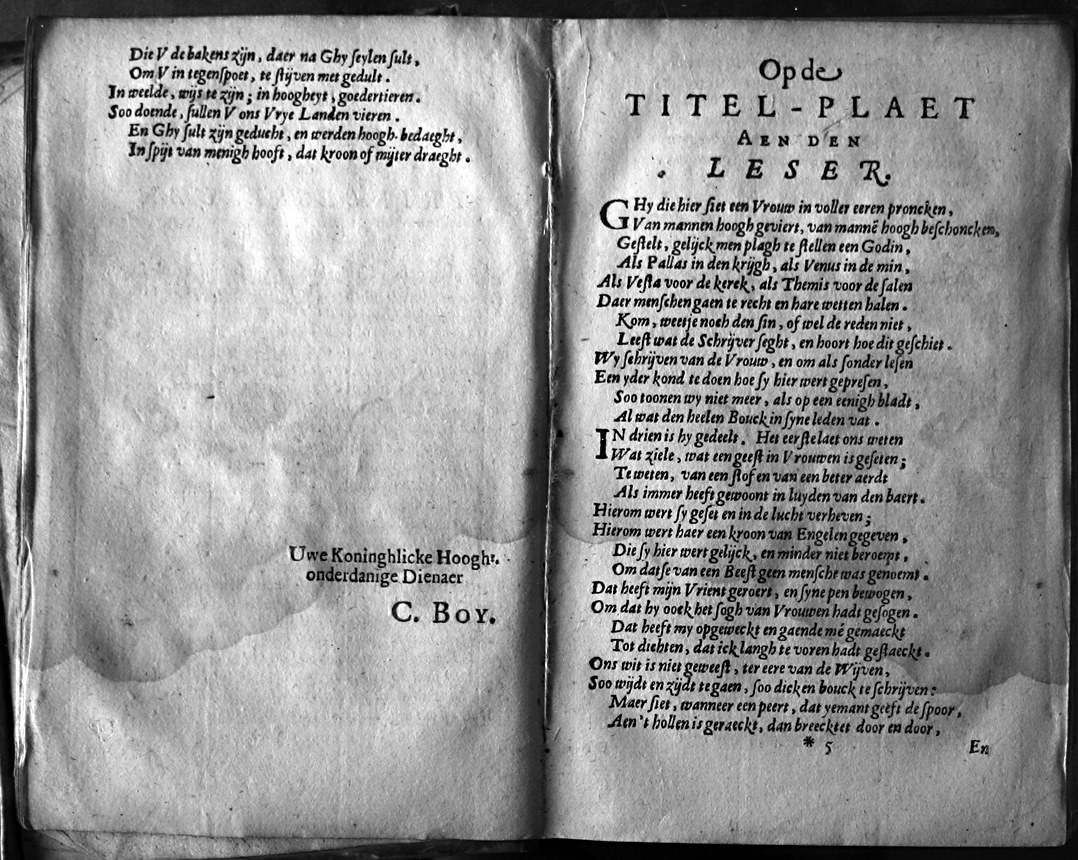 Die V de bakens zijn, daer na Ghy ſeylen ſult,
Om V in tegenſpoet, te ſtijven met gedult.
In weelde, wijs te zijn; in hoogheyt, goedertieren.
Soo doende, ſullen V ons Vrye Landen vieren.
En Ghy ſult zijn geducht, en werden hoogh-bedaeght,
In ſpijt van menigh hooft, dat kroon of mijter draeght.
Uwe Koninghlicke Hooghᵗ.
onderdanige Dienaer
C. BOY.
Op de
TITEL-PLAET
AEN DEN
LESER.
GHy die hier ſiet een Vrouw in voller eeren proncken,
Van mannen hoogh geviert, van mannē hoogh beſchoncken,
Geſtelt, gelijck men plagh te ſtellen een Godin,
Als Pallas in den krijgh, als Venus in de min,
Als Veſta voor de kerck, als Themis voor de ſalen
Daer menſchen gaen te recht en hare wetten halen.
Kom, weetje noch den ſin, of wel de reden niet,
Leeſt wat de Schrijver ſeght, en hoort hoe dit geſchiet.
Wy ſchrijven van de Vrouw, en om als ſonder leſen
Een yder kond te doen hoe ſy hier wert gepreſen,
Soo toonen wy niet meer, als op een eenigh bladt,
Al wat den heelen Bouck in ſyne leden vat.
IN drien is hy gedeelt. Het eerſte laet ons weten
Wat ziele, wat een geeſt in Vrouwen is geſeten;
Te weten, van een ſtof en van een beter aerdt
Als immer heeft gewoont in luyden van den baert.
Hierom wert ſy geſet en in de lucht verheven;
Hierom wert haer een kroon van Engelen gegeven,
Die ſy hier wert gelijck, en minder niet beroemt,
Om datſe van een Beeſt geen menſche was genoemt.
Dat heeft mijn Vrient geroert, en ſyne pen bewogen,
Om dat hy oock het ſogh van Vrouwen hadt geſogen.
Dat heeft my opgeweckt en gaende mé gemaeckt
Tot dichten, dat ick langh te voren hadt geſtaeckt.
Ons wit is niet geweeſt, ter eere van de Wijven,
Soo wijdt en zijdt te gaen, ſoo dicken bouck te ſchrijven:
Maer ſiet, wanneer een peert, dat yemant geeft de ſpoor,
Aen 't hollen is geraeckt, dan breecktet door en door,
* 5 En